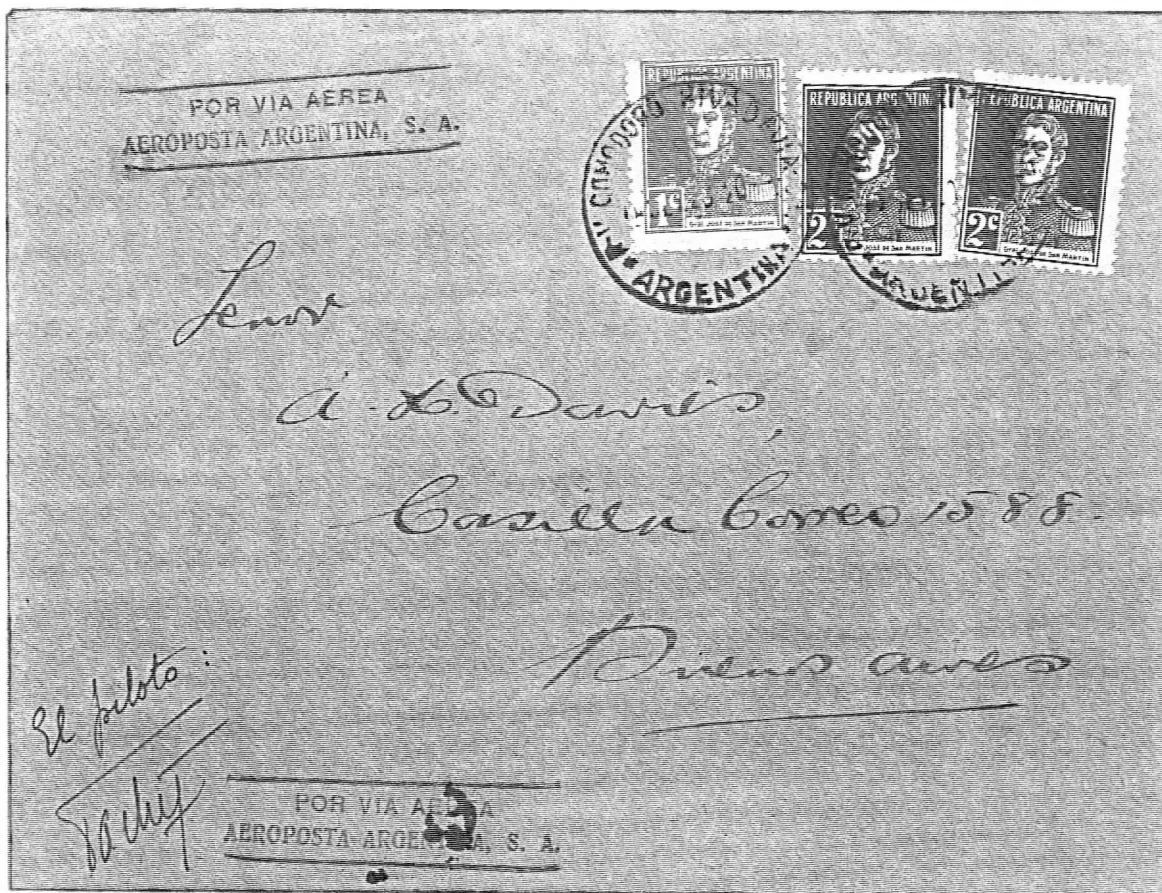 POR VIA AEREA
AEROPOSTA ARGENTINA, S. A.
REPUBLICA ARGENTINA
1c
Gral. José de San Martin
REPUBLICA ARGENTINA
2
José de San Martin
REPUBLICA ARGENTINA
2c
Gral. José de San Martin
COMODORO RIVADAVIA
ARGENTINA
Senor
A. L. Davies,
Casilla Correo 1588.
Buenos Aires
El piloto:
POR VIA AEREA
AEROPOSTA ARGENTINA, S. A.